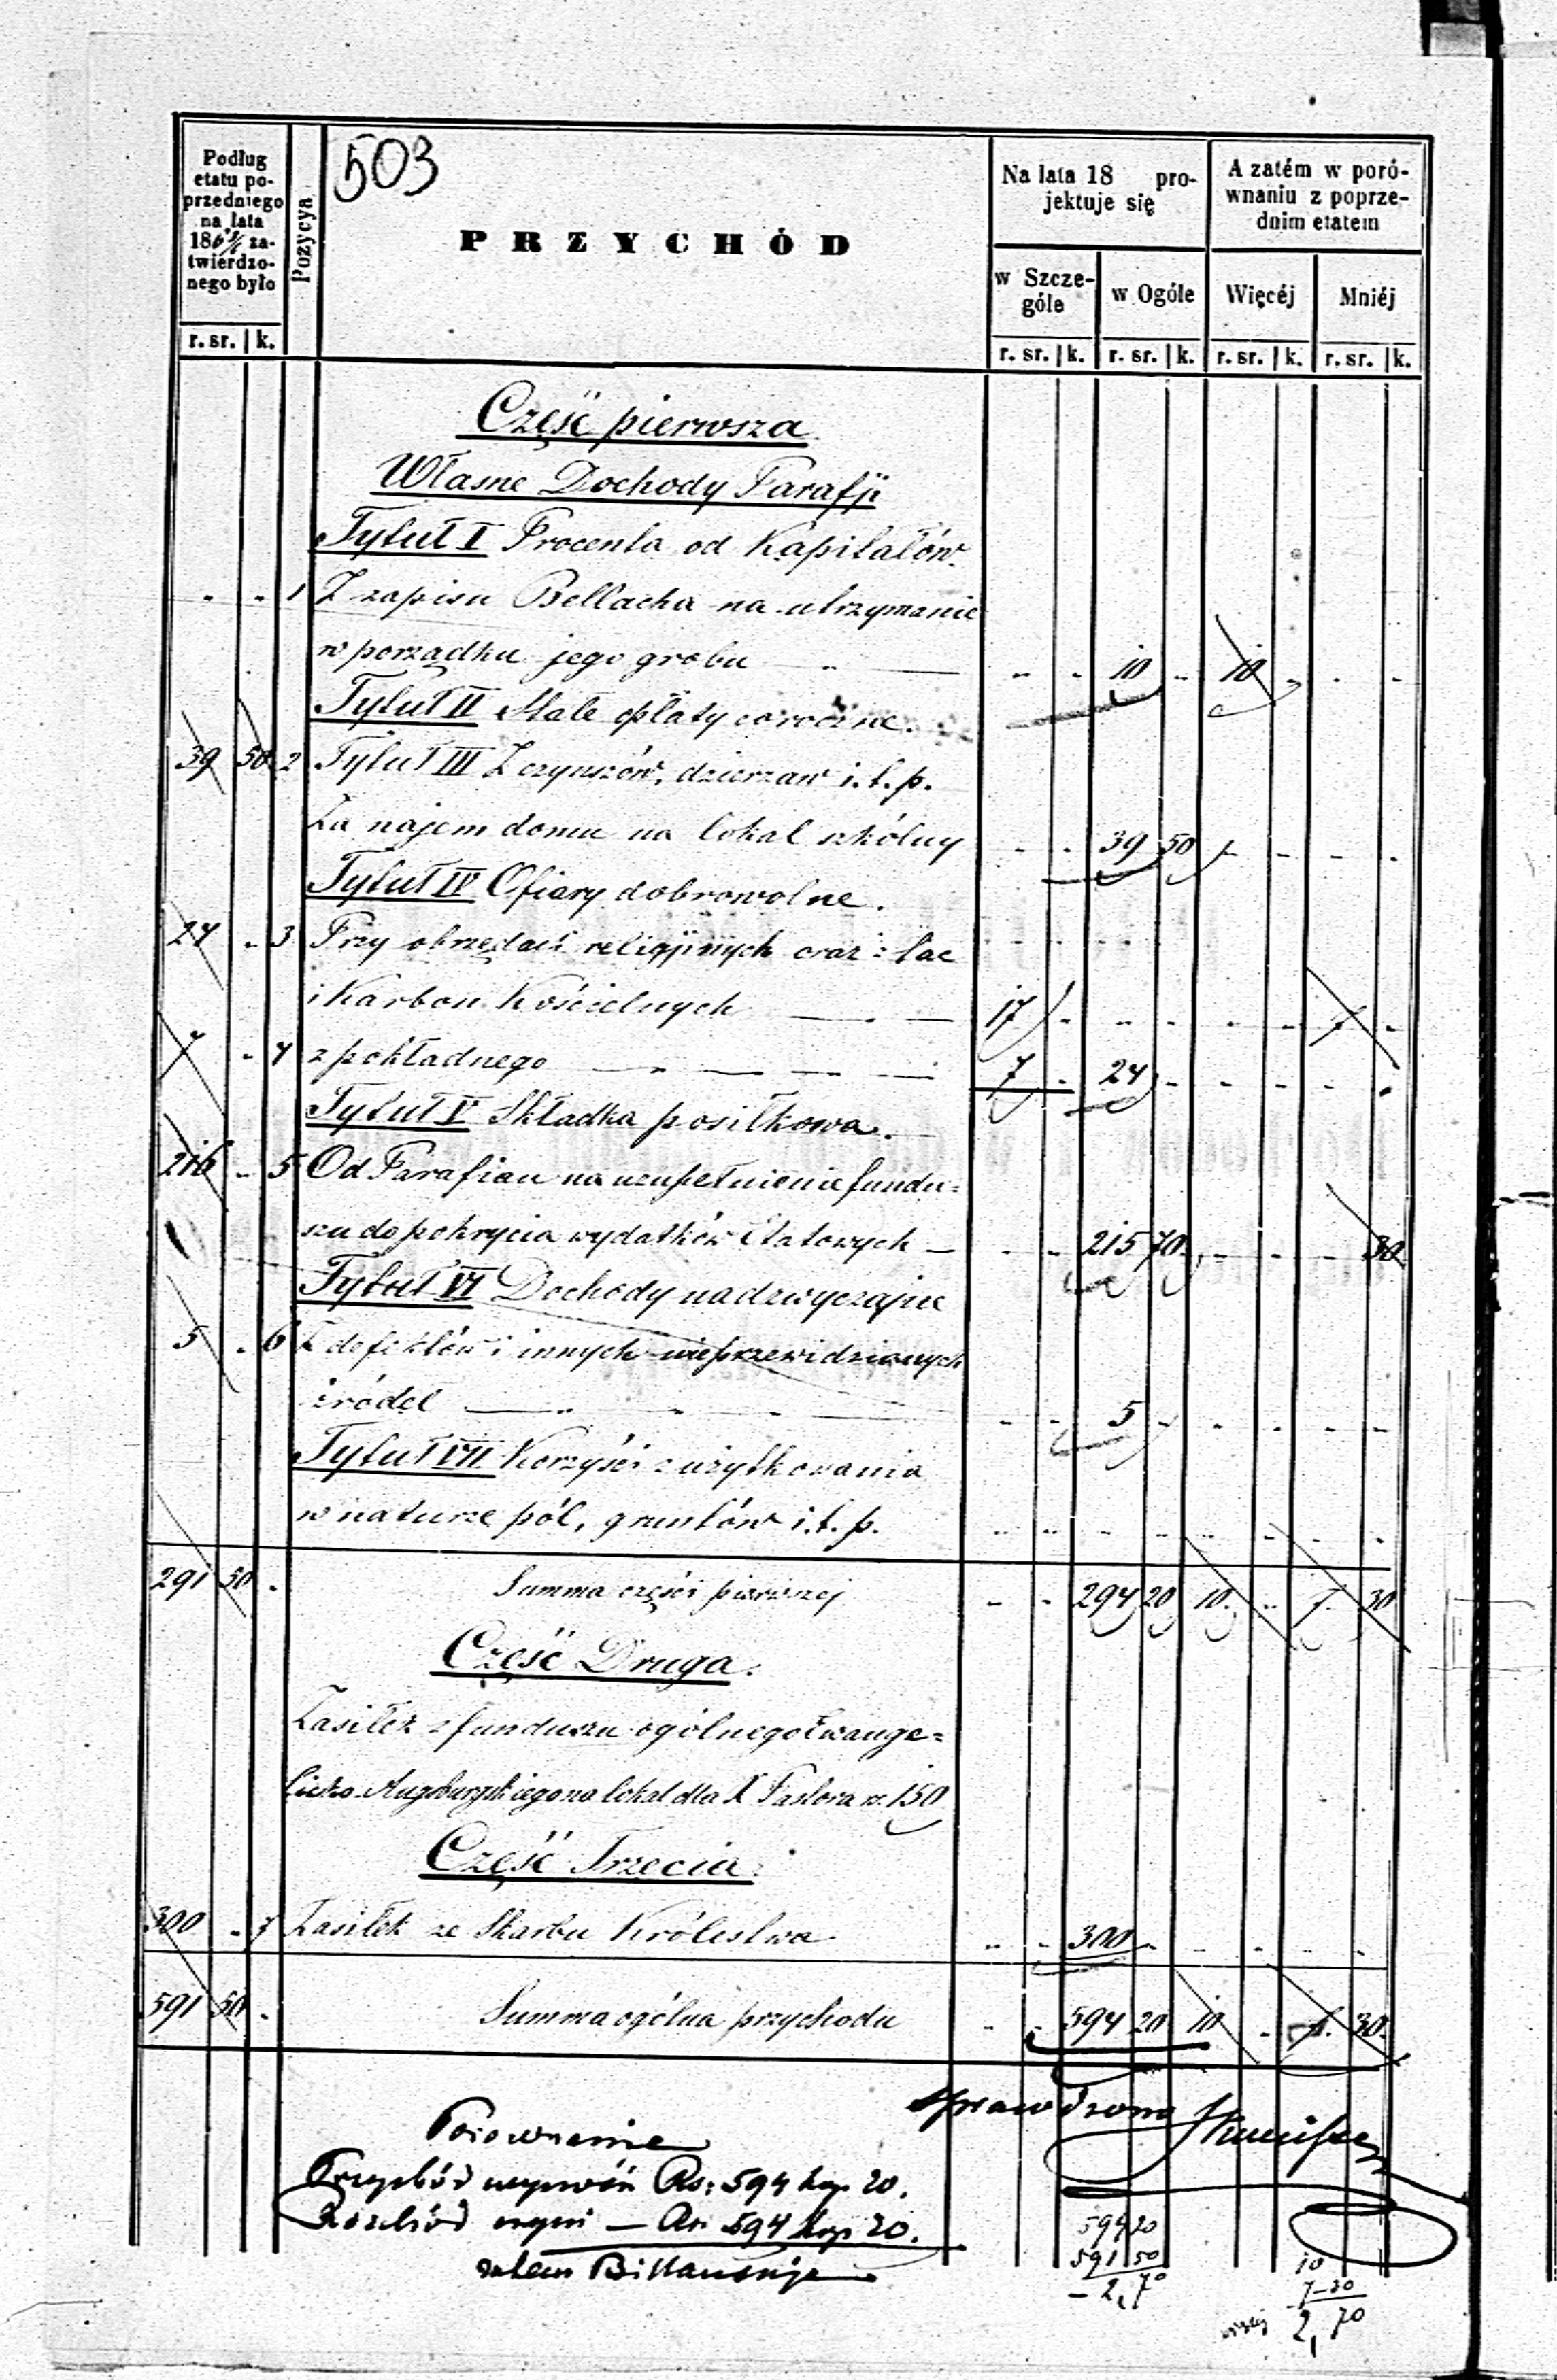 503
Podług
etatu po-
przedniego
na lata
186 za-
twierdzo-
nego było
Pozycya
PRZYCHÓD
Na lata 18 pro-
jektuje się
A zatém w poró-
wnaniu z poprze-
dnim etatem
w Szcze-
góle
w Ogóle
Więcéj
Mniéj
r. sr. k. r. sr. k. r. sr. k. r. sr. k. r. sr. k.
Część pierwsza
Własne Dochody Parafji
Tytuł I Procenta od Kapitałów.
" " 1 Z zapisu Bellacha na utrzymanie
w porządku jego grobu " " 10 " 10 " " "
Tytuł II Stałe opłaty coroczne.
39 50 2 Tytuł III Z czynszów, dzierzaw i.t.p.
Za najem domu na lokal szkólny " " 39 50 " " " "
Tytuł IV Ofiary dobrowolne.
24 " 3 Przy obrzędach religijnych oraz z tac
i Karbon Kościelnych 17 " " " " " 7 "
7 " 4 z pokładnego 7 " 24 " " " " "
Tytuł V Składka posiłkowa.
216 " 5 Od Parafian na uzupełnienie fundu=
szu do pokrycia wydatków etatowych — " " 215 70 " " " 30
Tytuł VI Dochody nadzwyczajne
5 " 6 Z defektów i innych nieprzewidzianych
źródeł " " 5 " " " " "
Tytuł VII Korzyści z użytkowania
w naturze pól, gruntów i.t.p. " " " " " " " "
291 50 " Summa części pierwszej " " 294 20 10 " 7 30
Część Druga.
Zasiłek z funduszu ogólnego Ewange=
licko-Augsburgskiego na lokal dla X Pastora rs. 150
Część Trzecia:
300 " 7 Zasiłek ze Skarbu Królestwa " " 300 " " " " "
591 50 " Summa ogólna przychodu " " 594 20 10 " 7 30
Sprawdzono
Porownanie
Przychód wynosi Rs: 594 kop 20.
Rozchód — Rs 594 kop 20.
zatem Billansuje
594 20
591 50
- 2,70
10
7-30
2,70